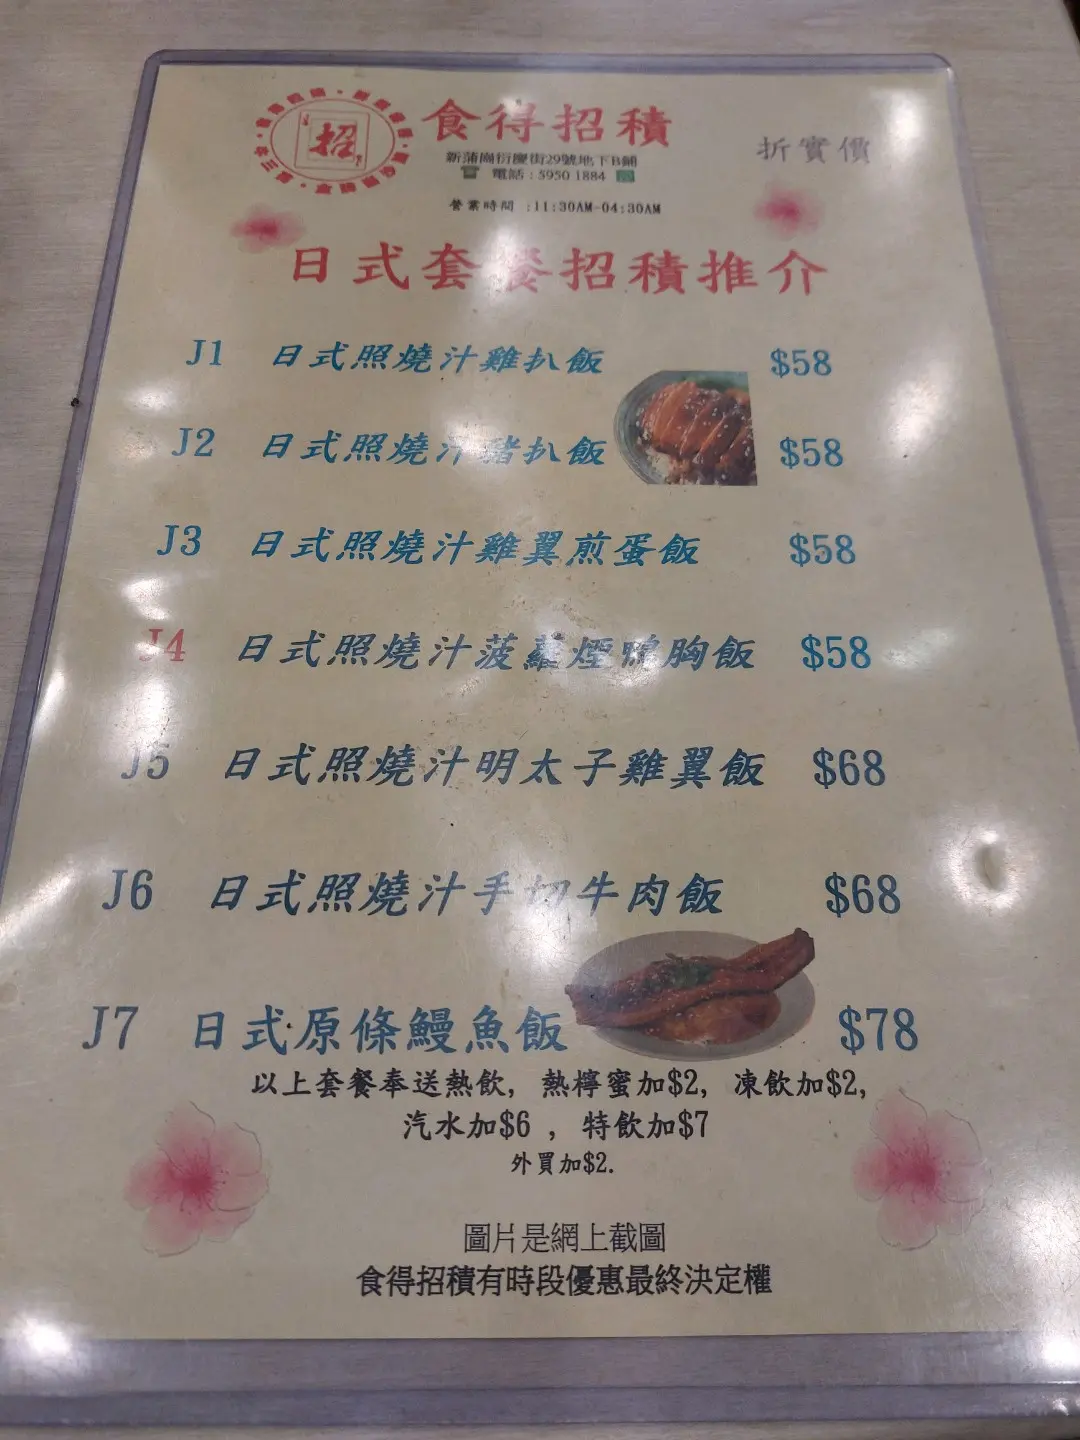 招
食得招積
折實價
新蒲崗衍慶街29號地下B鋪
電話：5950 1884
營業時間 :11:30AM-04:30AM
日式套餐招積推介
J1 日式照燒汁雞扒飯 $58
J2 日式照燒汁豬扒飯 $58
J3 日式照燒汁雞翼煎蛋飯 $58
J4 日式照燒汁菠蘿煙鴨胸飯 $58
J5 日式照燒汁明太子雞翼飯 $68
J6 日式照燒汁手切牛肉飯 $68
J7 日式原條鰻魚飯 $78
以上套餐奉送熱飲, 熱檸蜜加$2, 凍飲加$2,
汽水加$6 , 特飲加$7
外買加$2.
圖片是網上截圖
食得招積有時段優惠最終決定權